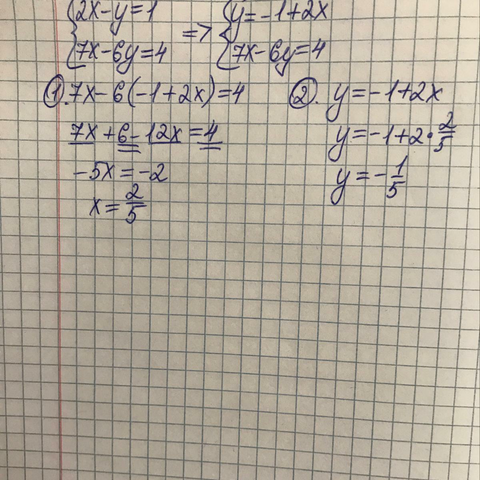 {2x-y=1 => {y=-1+2x
{7x-6y=4 {7x-6y=4
①. 7x-6(-1+2x)=4
7x+6-12x=4
-5x=-2
x=2/5
②. y=-1+2x
y=-1+2·2/5
y=-1/5